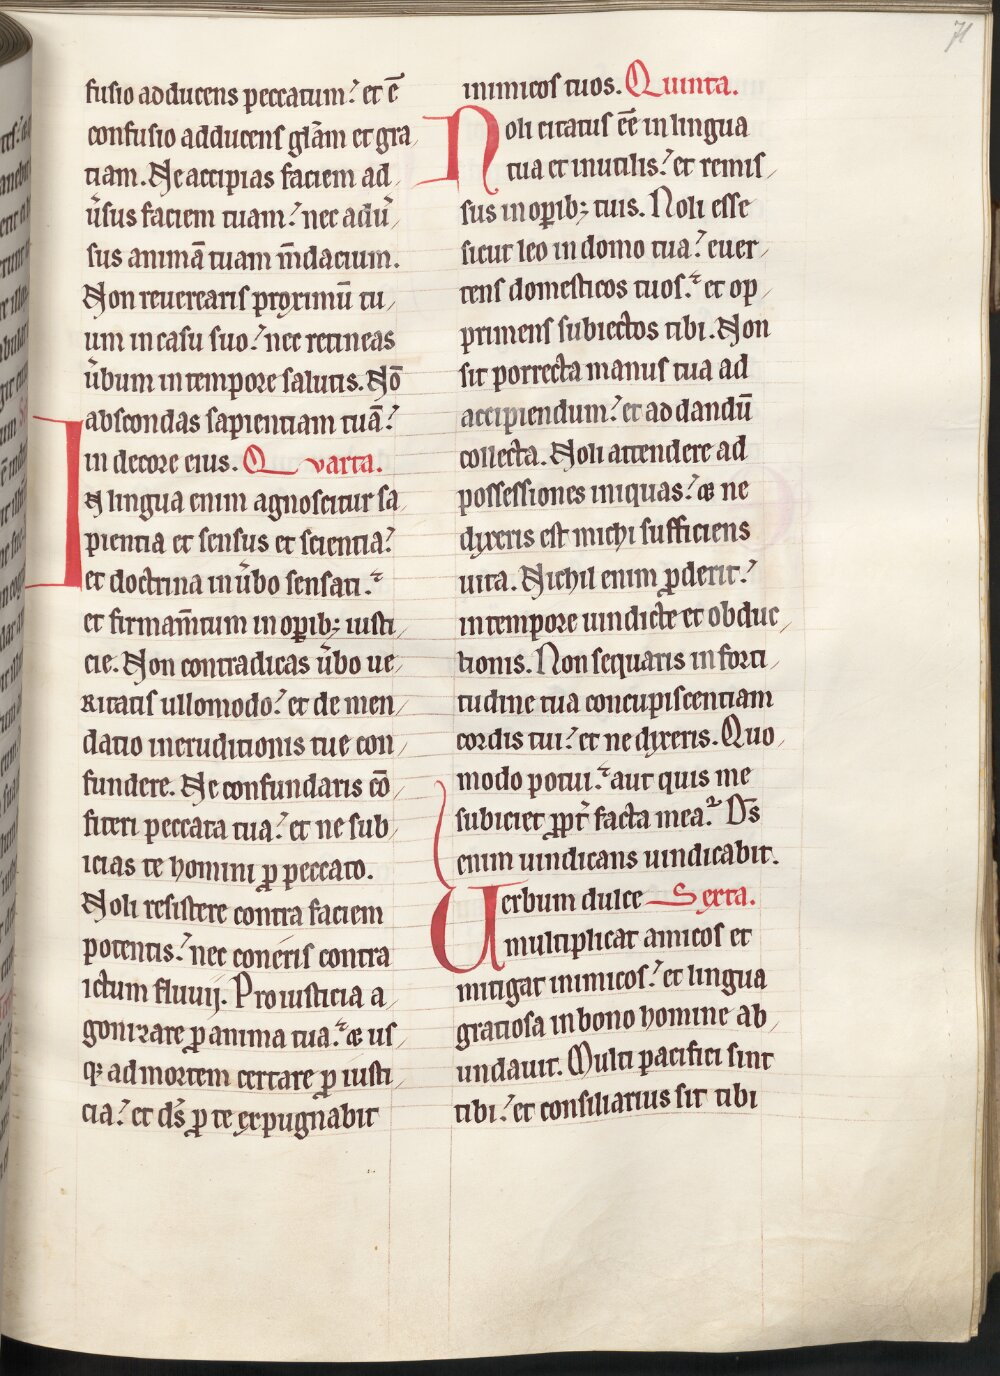 71
fusio adducens peccatum? et ē
confusio adducens gl̄am et gra
tiam. Ne accipias faciem ad
ūsus faciem tuam? nec adū
sus animā tuam m̄dacium.
Non reuerearis proximū tu
um in casu suo? nec retineas
ūbum in tempore salutis. Nō
abscondas sapientiam tuā?
in decore eius. Qvarta.
In lingua enim agnoscitur sa
pientia et sensus et scientia?
et doctrina in ūbo sensati.
et firmam̄tum in oꝑib; iusti
cie. Non contradicas ūbo ue
ritatis ullomodo? et de men
datio ineruditionis tue con
fundere. Ne confundaris cō
fiteri peccata tua? et ne sub
icias te homini ꝓ peccato.
Noli resistere contra faciem
potentis? nec coneris contra
ictum fluuij. Pro iusticia a
gonizare ꝓ anima tua. & us
qꝫ ad mortem certare ꝓ iusti
cia? et ds̄ ꝓ te expugnabit
inimicos tuos. Quinta.
Noli citatus eē in lingua
tua et inutilis? et remis
sus in oꝑib; tuis. Noli esse
sicut leo in domo tua? euer
tens domesticos tuos. et op
primens subiectos tibi. Non
sit porrecta manus tua ad
accipiendum? et ad dandū
collecta. Noli attendere ad
possessiones iniquas? & ne
dixeris est michi sufficiens
uita. Nichil enim ꝓderit?
in tempore uindicte et obduc
tionis. Non sequaris in forti
tudine tua concupiscentiam
cordis tui? et ne dixeris. Quo
modo potui. aut quis me
subiciet ꝓpt̄ facta mea? Ds̄
enim uindicans uindicabit.
Uerbum dulce Sexta.
multiplicat amicos et
mitigat inimicos? et lingua
gratiosa in bono homine ab
undauit. Multi pacifici sint
tibi? et consiliarius sit tibi